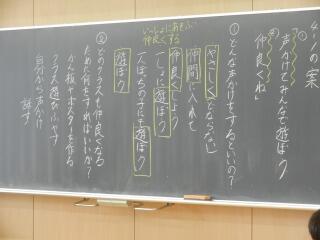 4-1の案
① 「声かけてみんなで遊ぼう
仲良くね」
いっしょにあそぶ
仲良くする
①どんな声かけをするといいの?
やさしく とならない
仲間に入れて
仲良くしよう
いっしょに遊ぼう
一人ぼっちの子にも遊ぼう
遊ぼう
②どのクラスも仲良くなる
ために何をすればいいか?
かん板やポスターを作る
クラス遊びふやす
自分から声かけ
話す